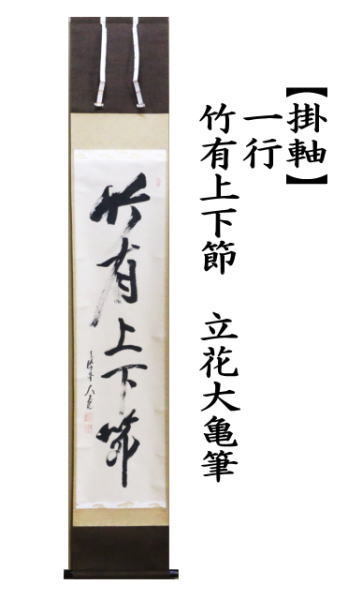 【掛軸】
一行
竹有上下節　立花大亀筆
竹有上下節